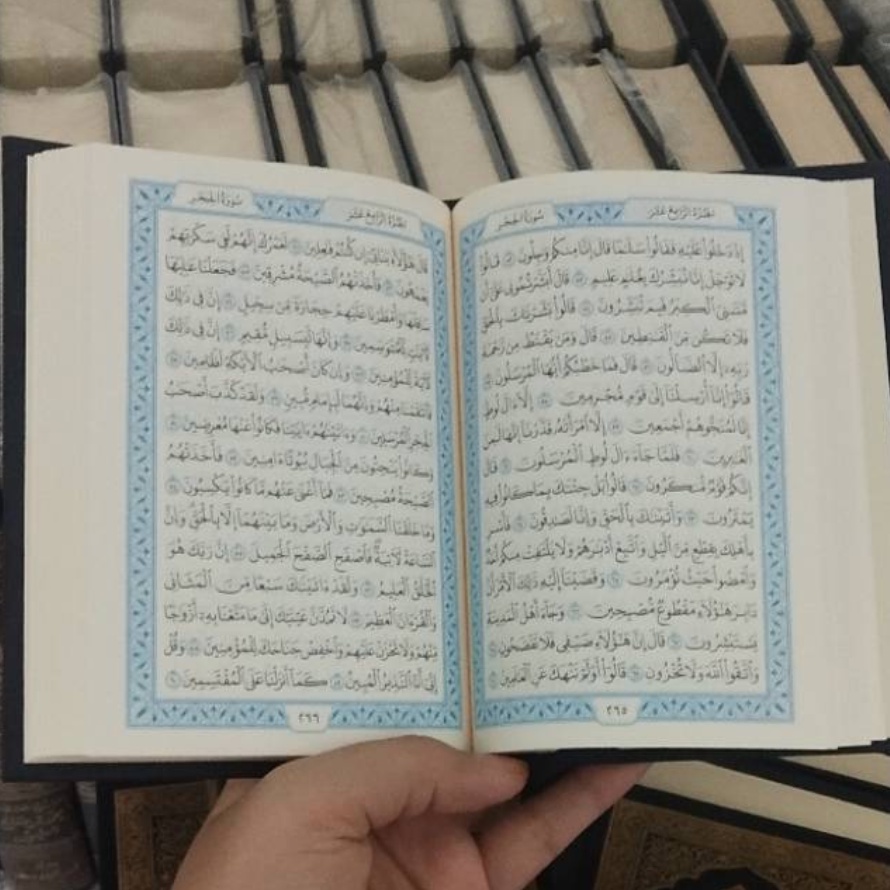 الجُزْءُ الرَّابِعَ عَشَرَ سُورَةُ الحِجْرِ
إِذْ دَخَلُوا۟ عَلَيْهِ فَقَالُوا۟ سَلَٰمًا قَالَ إِنَّا مِنكُمْ وَجِلُونَ ٥٢ قَالُوا۟
لَا تَوْجَلْ إِنَّا نُبَشِّرُكَ بِغُلَٰمٍ عَلِيمٍ ٥٣ قَالَ أَبَشَّرْتُمُونِى عَلَىٰٓ أَن
مَّسَّنِىَ ٱلْكِبَرُ فَبِمَ تُبَشِّرُونَ ٥٤ قَالُوا۟ بَشَّرْنَٰكَ بِٱلْحَقِّ
فَلَا تَكُن مِّنَ ٱلْقَٰنِطِينَ ٥٥ قَالَ وَمَن يَقْنَطُ مِن رَّحْمَةِ
رَبِّهِۦٓ إِلَّا ٱلضَّآلُّونَ ٥٦ قَالَ فَمَا خَطْبُكُمْ أَيُّهَا ٱلْمُرْسَلُونَ ٥٧
قَالُوٓا۟ إِنَّآ أُرْسِلْنَآ إِلَىٰ قَوْمٍ مُّجْرِمِينَ ٥٨ إِلَّآ ءَالَ لُوطٍ
إِنَّا لَمُنَجُّوهُمْ أَجْمَعِينَ ٥٩ إِلَّا ٱمْرَأَتَهُۥ قَدَّرْنَآ إِنَّهَا لَمِنَ
ٱلْغَٰبِرِينَ ٦٠ فَلَمَّا جَآءَ ءَالَ لُوطٍ ٱلْمُرْسَلُونَ ٦١ قَالَ
إِنَّكُمْ قَوْمٌ مُّنكَرُونَ ٦٢ قَالُوا۟ بَلْ جِئْنَٰكَ بِمَا كَانُوا۟ فِيهِ
يَمْتَرُونَ ٦٣ وَأَتَيْنَٰكَ بِٱلْحَقِّ وَإِنَّا لَصَٰدِقُونَ ٦٤ فَأَسْرِ
بِأَهْلِكَ بِقِطْعٍ مِّنَ ٱلَّيْلِ وَٱتَّبِعْ أَدْبَٰرَهُمْ وَلَا يَلْتَفِتْ مِنكُمْ أَحَدٌ
وَٱمْضُوا۟ حَيْثُ تُؤْمَرُونَ ٦٥ وَقَضَيْنَآ إِلَيْهِ ذَٰلِكَ ٱلْأَمْرَ أَنَّ
دَابِرَ هَٰٓؤُلَآءِ مَقْطُوعٌ مُّصْبِحِينَ ٦٦ وَجَآءَ أَهْلُ ٱلْمَدِينَةِ
يَسْتَبْشِرُونَ ٦٧ قَالَ إِنَّ هَٰٓؤُلَآءِ ضَيْفِى فَلَا تَفْضَحُونِ ٦٨
وَٱتَّقُوا۟ ٱللَّهَ وَلَا تُخْزُونِ ٦٩ قَالُوٓا۟ أَوَلَمْ نَنْهَكَ عَنِ ٱلْعَٰلَمِينَ ٧٠
٢٦٥
الجُزْءُ الرَّابِعَ عَشَرَ سُورَةُ الحِجْرِ
قَالَ هَٰٓؤُلَآءِ بَنَاتِىٓ إِن كُنتُمْ فَٰعِلِينَ ٧١ لَعَمْرُكَ إِنَّهُمْ لَفِى سَكْرَتِهِمْ
يَعْمَهُونَ ٧٢ فَأَخَذَتْهُمُ ٱلصَّيْحَةُ مُشْرِقِينَ ٧٣ فَجَعَلْنَا عَٰلِيَهَا
سَافِلَهَا وَأَمْطَرْنَا عَلَيْهِمْ حِجَارَةً مِّن سِجِّيلٍ ٧٤ إِنَّ فِى ذَٰلِكَ
لَـَٔايَٰتٍ لِّلْمُتَوَسِّمِينَ ٧٥ وَإِنَّهَا لَبِسَبِيلٍ مُّقِيمٍ ٧٦ إِنَّ فِى ذَٰلِكَ
لَـَٔايَةً لِّلْمُؤْمِنِينَ ٧٧ وَإِن كَانَ أَصْحَٰبُ ٱلْأَيْكَةِ لَظَٰلِمِينَ ٧٨
فَٱنتَقَمْنَا مِنْهُمْ وَإِنَّهُمَا لَبِإِمَامٍ مُّبِينٍ ٧٩ وَلَقَدْ كَذَّبَ أَصْحَٰبُ
ٱلْحِجْرِ ٱلْمُرْسَلِينَ ٨٠ وَءَاتَيْنَٰهُمْ ءَايَٰتِنَا فَكَانُوا۟ عَنْهَا مُعْرِضِينَ ٨١
وَكَانُوا۟ يَنْحِتُونَ مِنَ ٱلْجِبَالِ بُيُوتًا ءَامِنِينَ ٨٢ فَأَخَذَتْهُمُ
ٱلصَّيْحَةُ مُصْبِحِينَ ٨٣ فَمَآ أَغْنَىٰ عَنْهُم مَّا كَانُوا۟ يَكْسِبُونَ ٨٤
وَمَا خَلَقْنَا ٱلسَّمَٰوَٰتِ وَٱلْأَرْضَ وَمَا بَيْنَهُمَآ إِلَّا بِٱلْحَقِّ وَإِنَّ
ٱلسَّاعَةَ لَـَٔاتِيَةٌ فَٱصْفَحِ ٱلصَّفْحَ ٱلْجَمِيلَ ٨٥ إِنَّ رَبَّكَ هُوَ
ٱلْخَلَّٰقُ ٱلْعَلِيمُ ٨٦ وَلَقَدْ ءَاتَيْنَٰكَ سَبْعًا مِّنَ ٱلْمَثَانِى
وَٱلْقُرْءَانَ ٱلْعَظِيمَ ٨٧ لَا تَمُدَّنَّ عَيْنَيْكَ إِلَىٰ مَا مَتَّعْنَا بِهِۦٓ أَزْوَٰجًا
مِّنْهُمْ وَلَا تَحْزَنْ عَلَيْهِمْ وَٱخْفِضْ جَنَاحَكَ لِلْمُؤْمِنِينَ ٨٨ وَقُلْ
إِنِّىٓ أَنَا ٱلنَّذِيرُ ٱلْمُبِينُ ٨٩ كَمَآ أَنزَلْنَا عَلَى ٱلْمُقْتَسِمِينَ ٩٠
٢٦٦